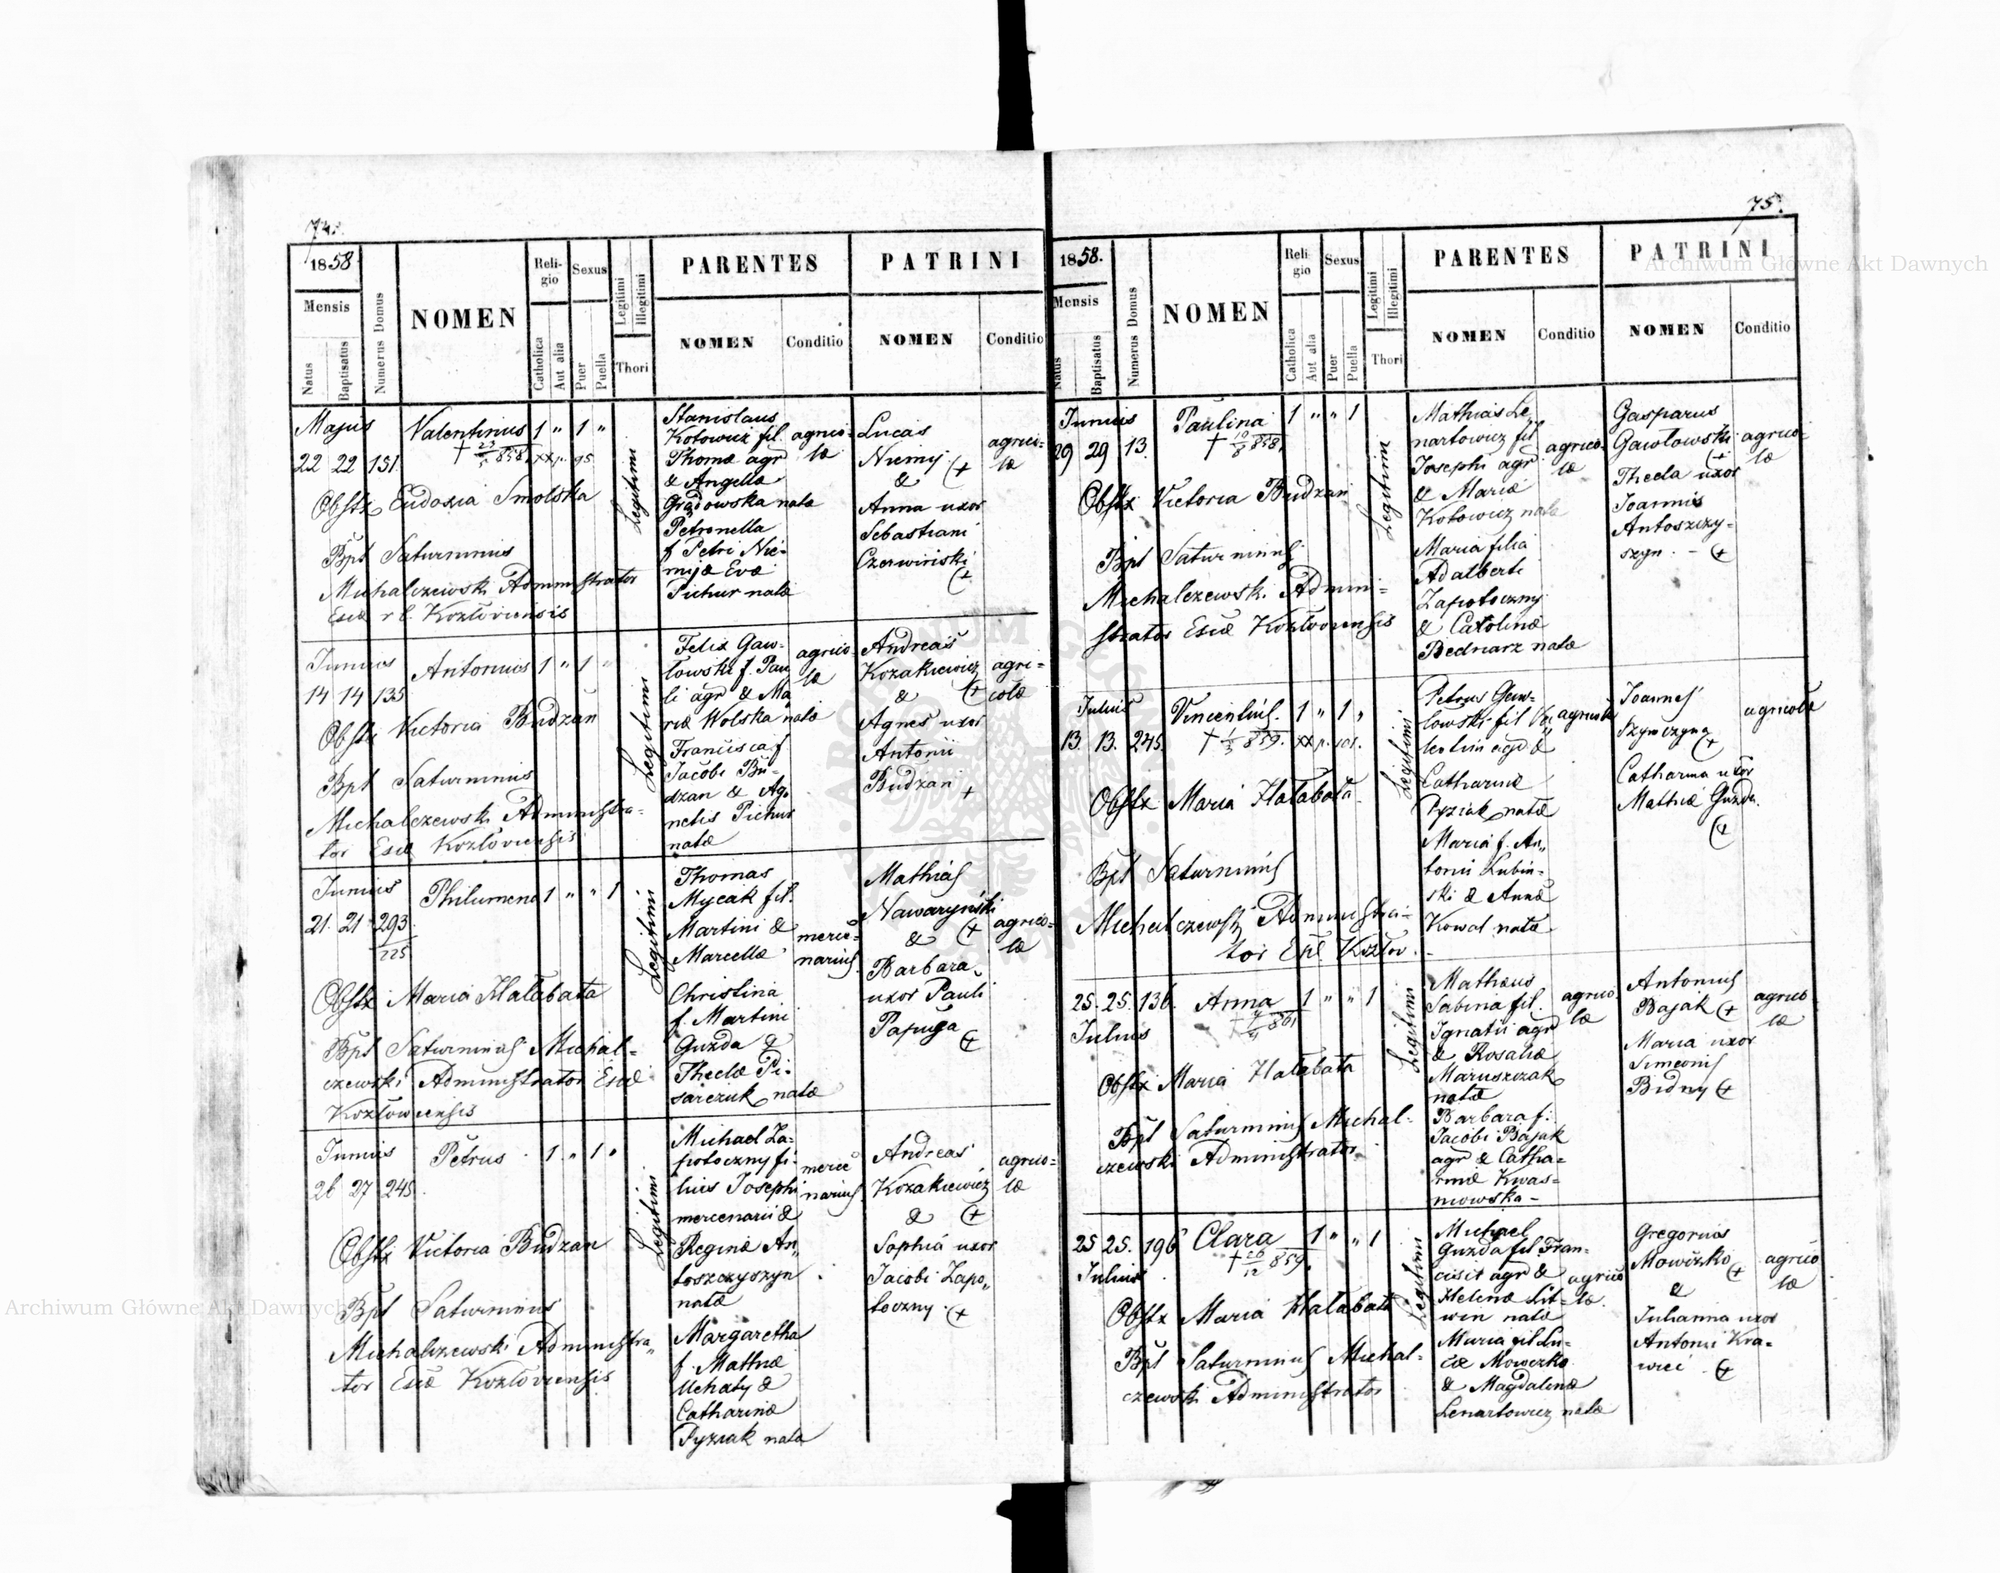 74.
1858.
Mensis
Natus
Baptisatus
Numerus Domus
NOMEN
Reli-
gio
Catholica
Aut alia
Sexus
Puer
Puella
Legitimi
Illegitimi
Thori
PARENTES
NOMEN
Conditio
PATRINI
NOMEN
Conditio
Majus
22 22 151
Valentinus 1 " 1 "
Obstx Eudoxia Smolska
Bpt Saturninus
Michalczewski Administrator
Kozłoviensis
Legitimi
Stanislaus
Kotowicz fil.
Thomæ agr
& Angellæ
Gradowska natæ
Petronella
f Petri Nie-
myjæ Evæ
Pichur natæ
agrico-
læ
Lucas
Niemy (+
&
Anna uxor
Sebastiani
Czerwiński
(+
agrico-
læ
Junius
14 14 135
Antonius 1 " 1 "
Obstx Victoria Budzan
Bpt Saturninus
Michalczewski Administra-
tor Esiæ Kozłoviensis
Legitimi
Felix Gaw-
łowski f. Pau
li agr & Ma
riæ Wolska natæ
Francisca f.
Jacobi Bu-
dzan & Ag-
netis Pichur
natæ
agrico-
læ
Andreas
Kozakiewicz
& (+
Agnes uxor
Antonii
Budzan +
agri-
colæ
Junius
21. 21 293
225
Philumena 1 " " 1
Obstx Maria Hałabata
Bpt Saturninus Michal-
czewski Administrator Esiæ
Kozłowiensis
Legitimi
Thomas
Mycak fil.
Martini &
Marcellæ
Christina
f. Martini
Guzda &
Theclæ Pi-
sarczuk natæ
merce-
narius
Mathias
Nawaryński
& (+
Barbara
uxor Pauli
Papuga
(+
agrico-
læ
Junius
26 27 245.
Petrus 1 " 1 "
Obstx Victoria Budzan
Bpt Saturninus
Michalczewski Administra-
tor Esiæ Kozłoviensis
Legitimi
Michael Za-
potoczny fi-
lius Josephi
mercenarii &
Reginæ An-
toszczyszyn
natæ
Margaretha
f. Mathiæ
Uchaty &
Catharinæ
Pyziak natæ
merce
narius
Andreas
Kozakiewicz
& (+
Sophia uxor
Jacobi Zapo-
toczny (+
agrico-
læ
75.
1858.
Mensis
Natus
Baptisatus
Numerus Domus
NOMEN
Reli-
gio
Catholica
Aut alia
Sexus
Puer
Puella
Legitimi
Illegitimi
Thori
PARENTES
NOMEN
Conditio
PATRINI
NOMEN
Conditio
Junius
29 29 13.
Paulina 1 " " 1
† 10/8 858.
Obstx Victoria Budzan
Bpt Saturninus
Michalczewski Admini-
strator Esiæ Kozłoviensis
Legitimi
Mathias Le
nartowicz fil
Josephi agr
& Mariæ
Kotowicz natæ
Maria filia
Adalberti
Zapotoczny
& Carolinæ
Bednarz natæ
agrico-
læ
Gasparus
Gawłowski
(+
Thecla uxor
Joannis
Antoszczy-
szyn - (+
agrico-
læ
Julius
13. 13. 245.
Vincentius. 1 " 1 "
Obstx Maria Hałabata
Bpt Saturninus
Michalczewski Administra-
tor Esiæ Kozłov.
Legitimi
Petrus Gaw-
łowski fil Va
lentini agr &
Catharinæ
Pyziak natæ
Maria f. An-
tonii Lubin-
ski & Annæ
Kowal natæ
agricolæ
Joannes
Szymczyna
(+
Catharina uxor
Mathiæ Guzda.
(+
agricolæ
25. 25. 136.
Julius
Anna 1 " " 1
Obstx Maria Hałabata
Bpt Saturninus Michal-
czewski Administrator
Legitimi
Mathæus
Sabina fil.
Ignatii agr
& Rosaliæ
Maruszczak
natæ
Barbara f.
Jacobi Bajak
agr & Catha-
rinæ Kwas-
niowska -
agrico
læ
Antonius
Bajak (+
Maria uxor
Simeonis
Bidny (+
agrico
læ
25 25. 196
Julius
Clara 1 " " 1
† 26/12 859.
Obstx Maria Hałabata
Bpt Saturninus Michal-
czewski Administrator
Legitimi
Michael
Guzda fil. Fran-
cisci agr &
Helenæ Lit-
win natæ
Maria fil Lu-
cæ Mowczko
& Magdalenæ
Lenartowicz natæ
agrico
læ.
Gregorius
Mowczko
& (+
Julianna uxor
Antonii Kra-
wiec (+
agrico
læ
Archiwum Główne Akt Dawnych
Archiwum Główne Akt Dawnych